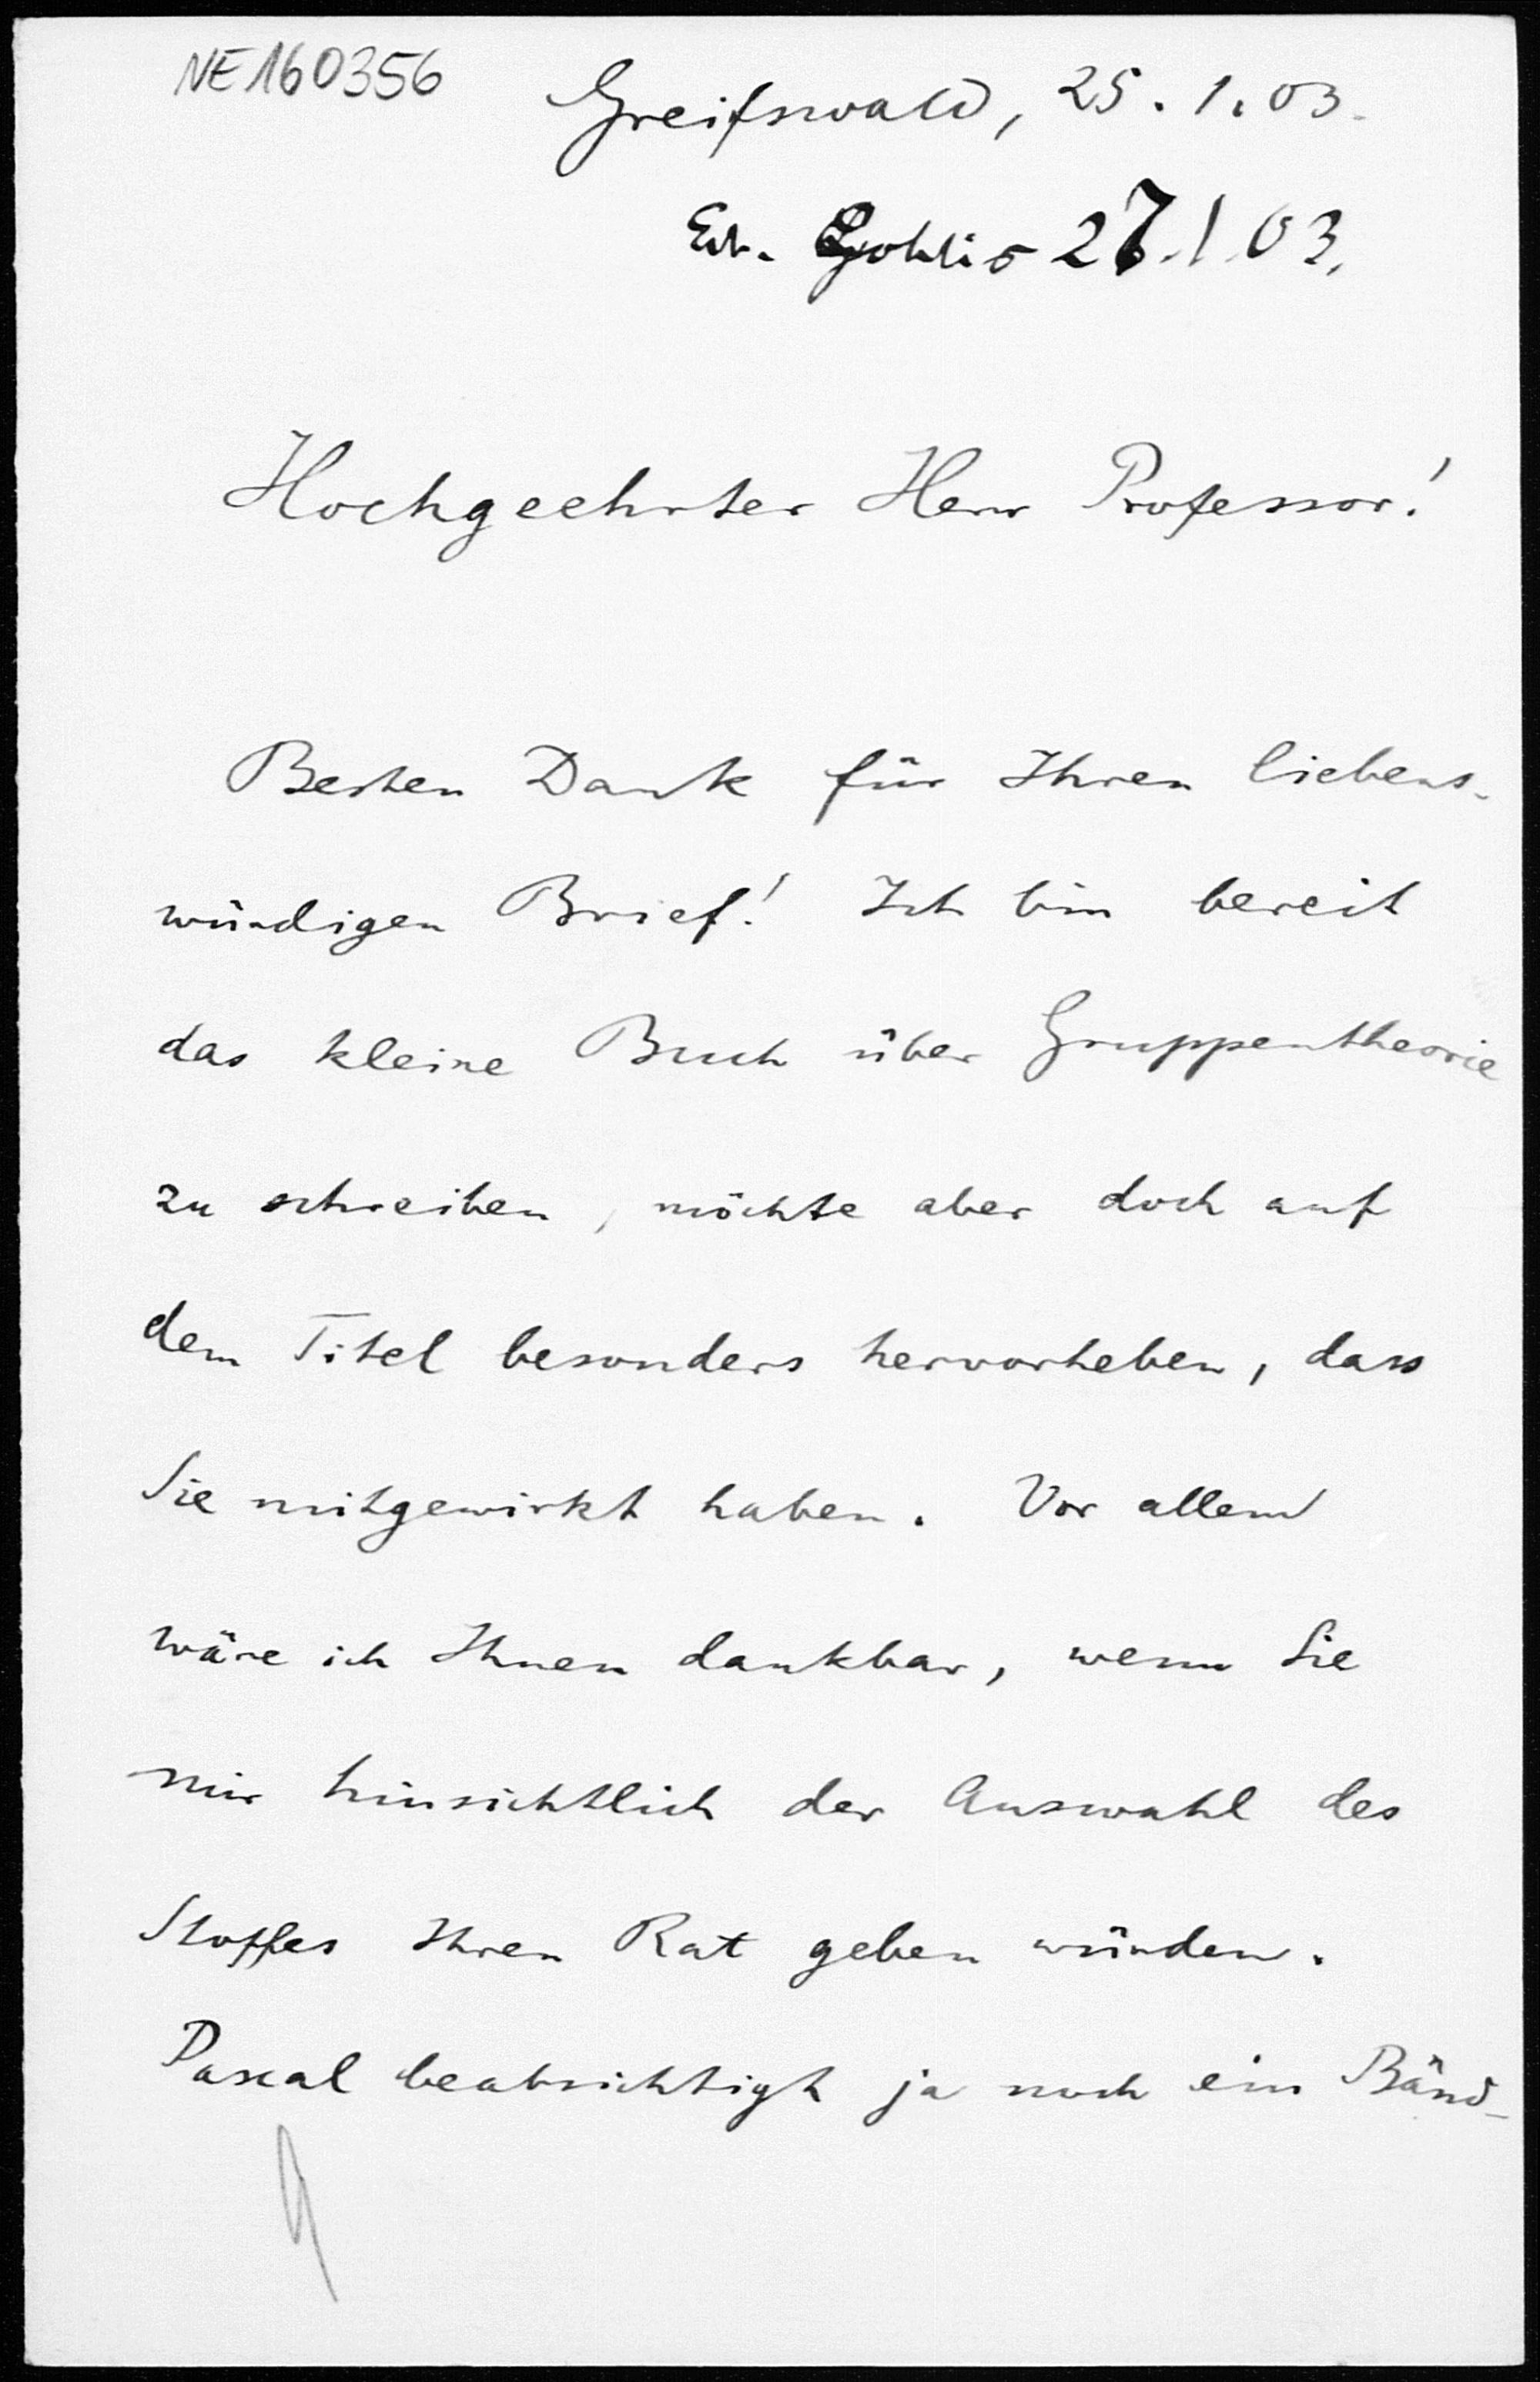 NE160356
Greifswald, 25. 1. 03.
Erh. Gohlis 27. 1. 03.
Hochgeehrter Herr Professor!
Besten Dank für Ihren liebens-
würdigen Brief! Ich bin bereit
das kleine Buch über Gruppentheorie
zu schreiben, möchte aber doch auf
dem Titel besonders hervorheben, dass
Sie mitgewirkt haben. Vor allem
wäre ich Ihnen dankbar, wenn Sie
mir hinsichtlich der Auswahl des
Stoffes Ihren Rat geben würden.
Pascal beabsichtigt ja noch ein Bänd-